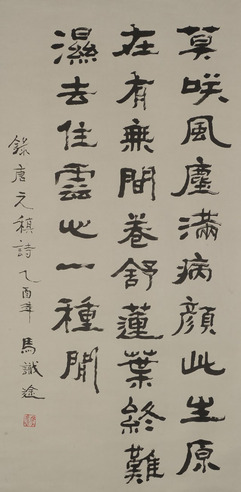 莫咲風塵滿病顏此生原
在有無間卷舒蓮葉終難
濕去住雲心一種閒
錄唐元稹詩乙酉年馬識途